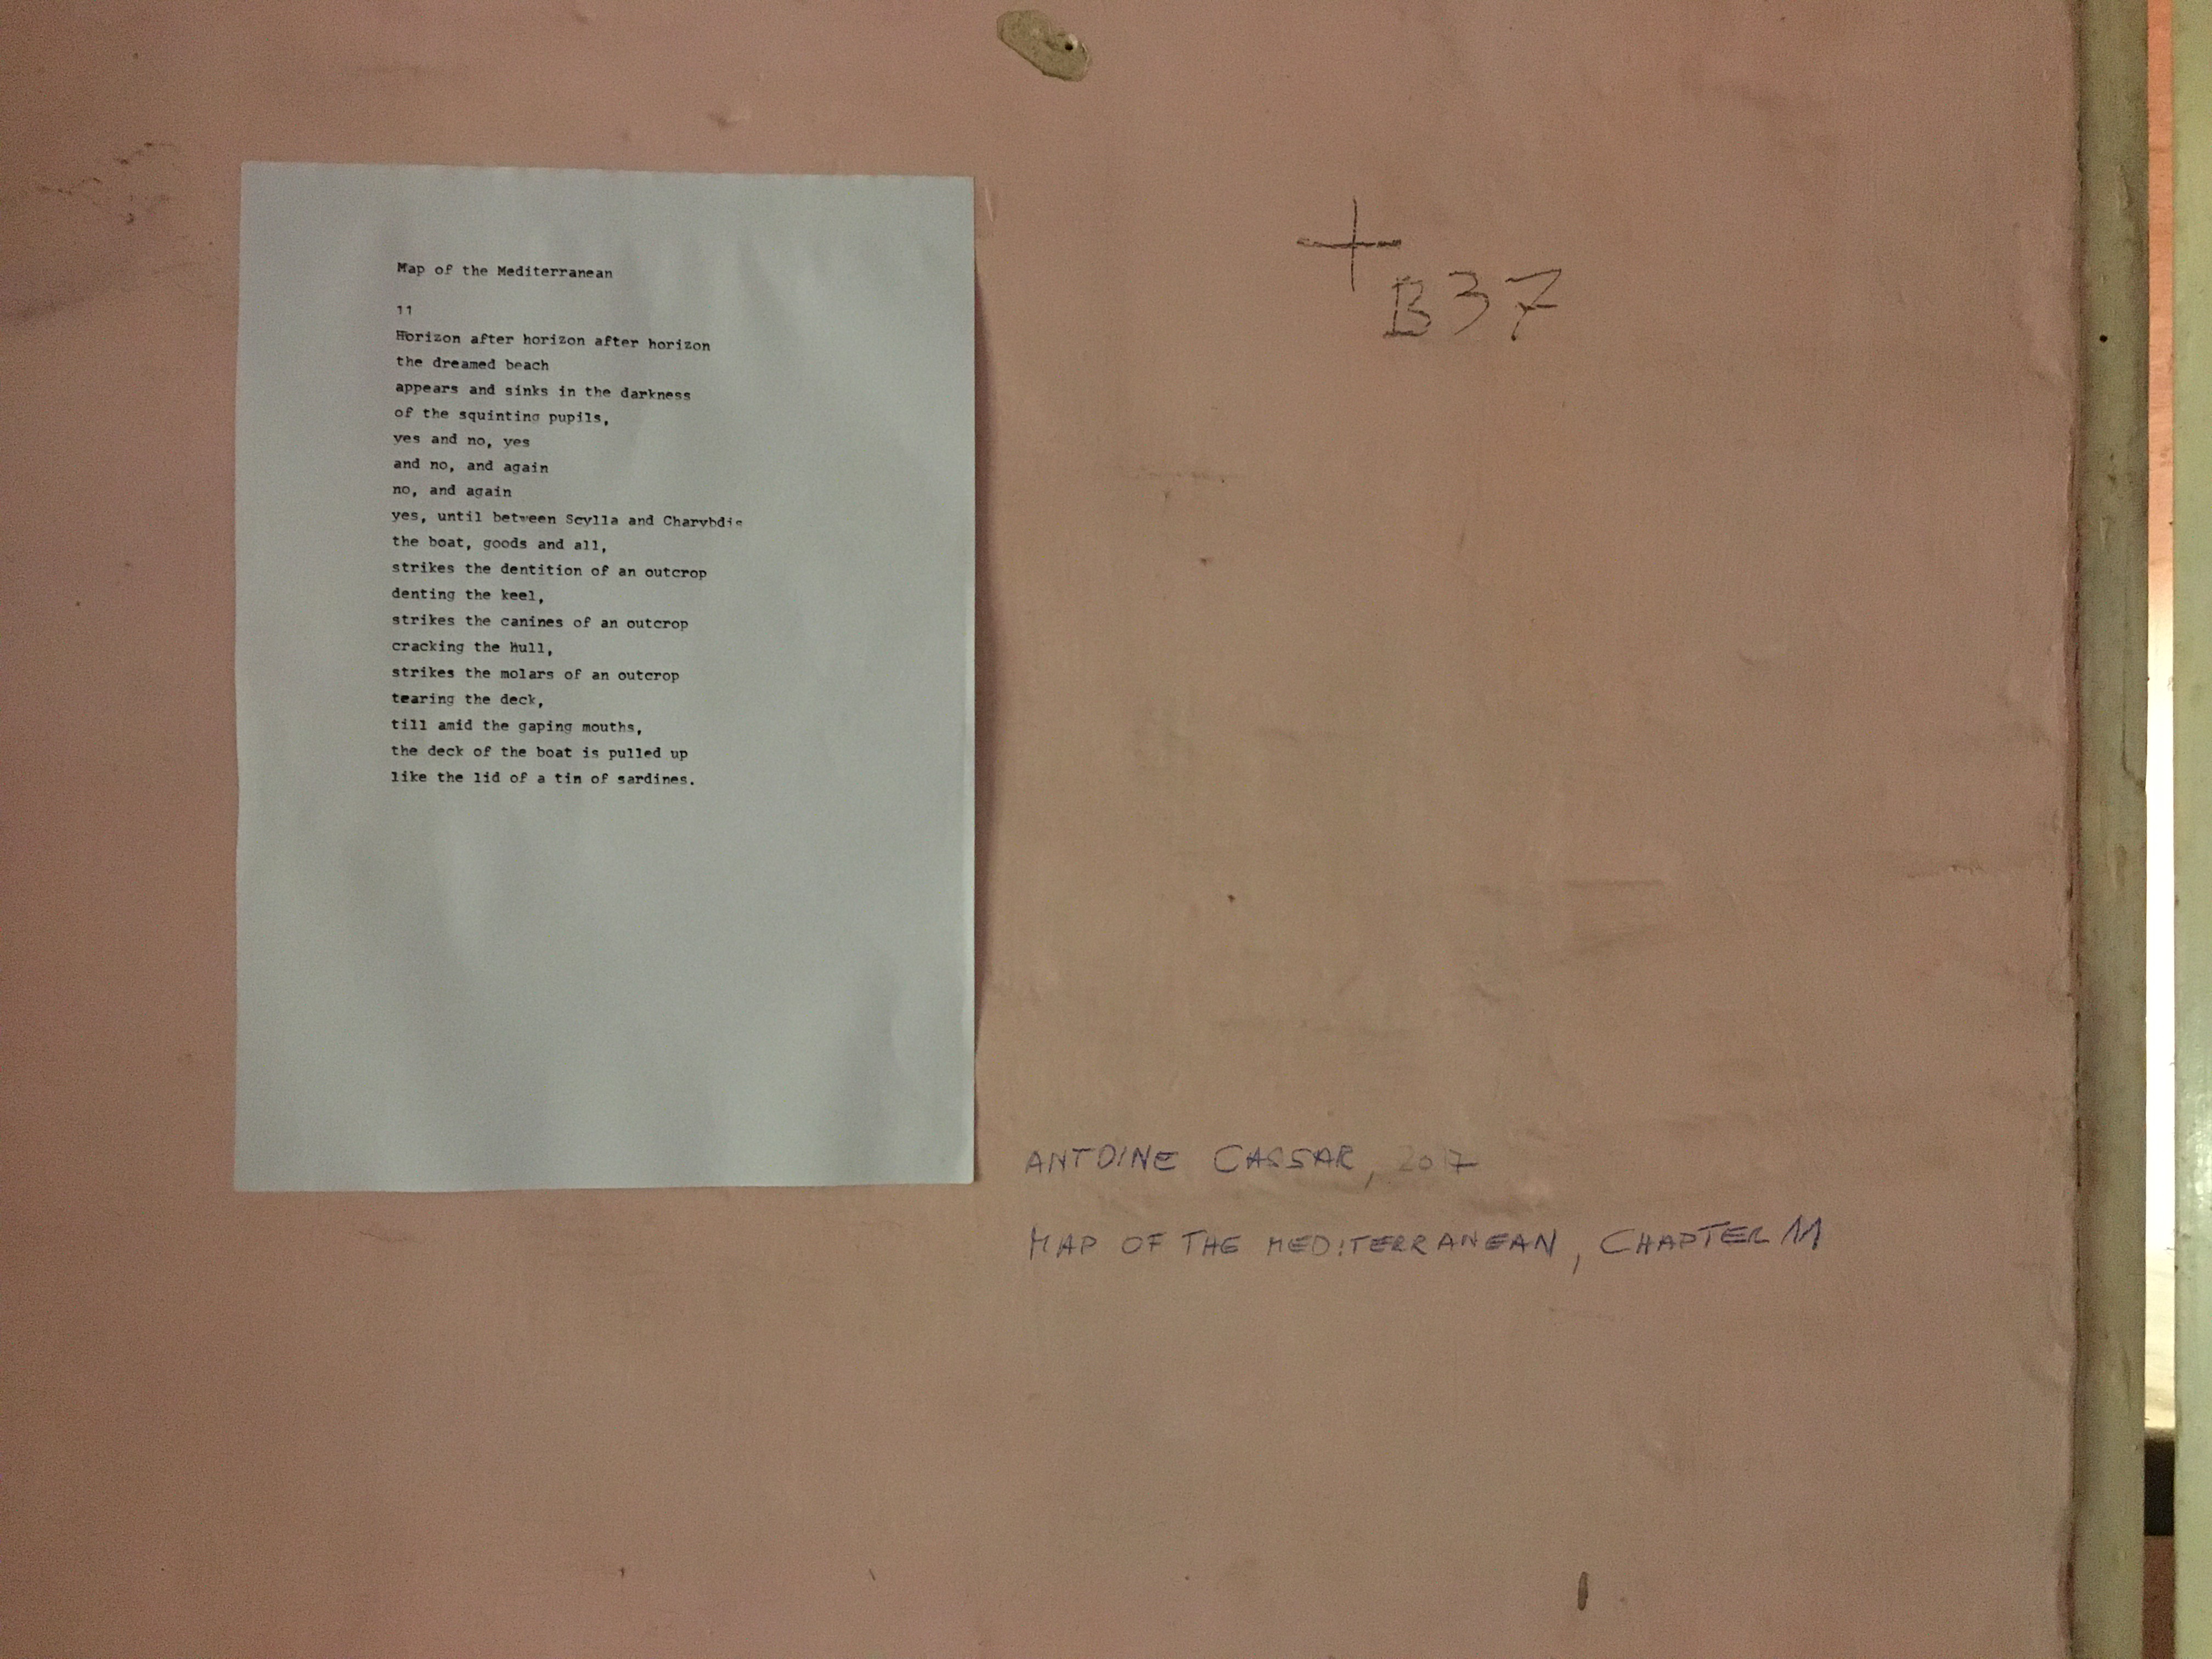 Map of the Mediterranean
11
Horizon after horizon after horizon
the dreamed beach
appears and sinks in the darkness
of the squinting pupils,
yes and no, yes
and no, and again
no, and again
yes, until between Scylla and Charybdis
the boat, goods and all,
strikes the dentition of an outcrop
denting the keel,
strikes the canines of an outcrop
cracking the hull,
strikes the molars of an outcrop
tearing the deck,
till amid the gaping mouths,
the deck of the boat is pulled up
like the lid of a tin of sardines.
+
B37
ANTOINE CASSAR, 2017
MAP OF THE MEDITERRANEAN, CHAPTER 11